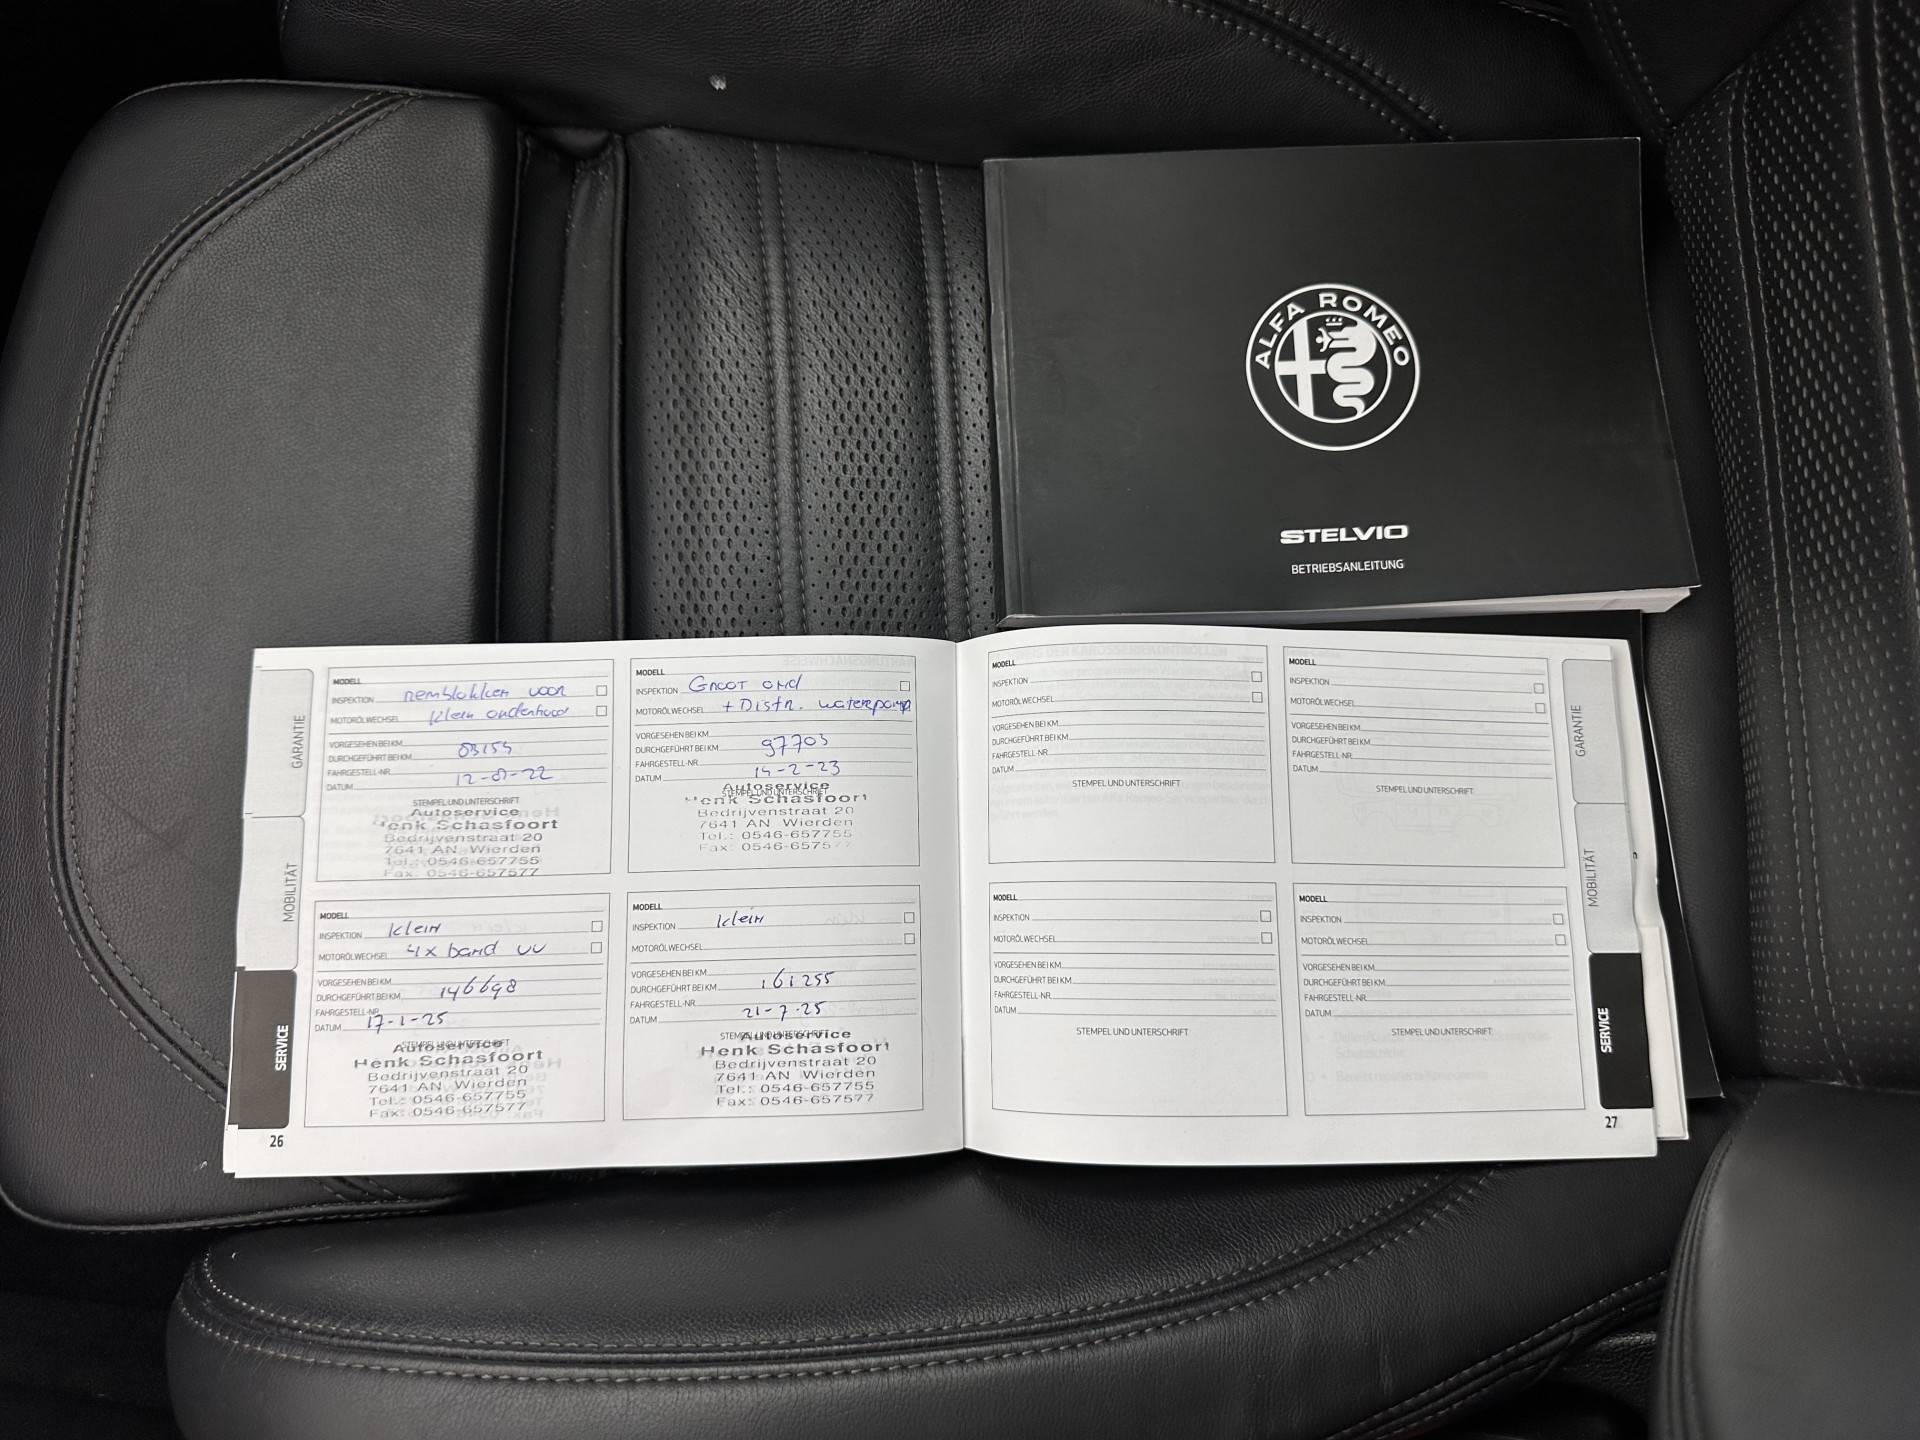 ALFA ROMEO
STELVIO
BETRIEBSANLEITUNG
GARANTIE
MOBILITÄT
SERVICE
26
MODELL
INSPEKTION remblokken voor
MOTORÖLWECHSEL Klein onderhoud
VORGESEHEN BEI KM
DURCHGEFÜHRT BEI KM 83155
FAHRGESTELL-NR.
DATUM 12-01-22
STEMPEL UND UNTERSCHRIFT
Autoservice
Henk Schasfoort
Bedrijvenstraat 20
7641 AN Wierden
Tel.: 0546-657755
Fax: 0546-657577
MODELL
INSPEKTION Groot ond
MOTORÖLWECHSEL + Distr. waterpomp
VORGESEHEN BEI KM
DURCHGEFÜHRT BEI KM 97703
FAHRGESTELL-NR.
DATUM 14-2-23
STEMPEL UND UNTERSCHRIFT
Autoservice
Henk Schasfoort
Bedrijvenstraat 20
7641 AN Wierden
Tel.: 0546-657755
Fax: 0546-657577
MODELL
INSPEKTION Klein
MOTORÖLWECHSEL 4x band vv
VORGESEHEN BEI KM
DURCHGEFÜHRT BEI KM 146698
FAHRGESTELL-NR.
DATUM 17-1-25
STEMPEL UND UNTERSCHRIFT
Autoservice
Henk Schasfoort
Bedrijvenstraat 20
7641 AN Wierden
Tel.: 0546-657755
Fax: 0546-657577
MODELL
INSPEKTION Klein
MOTORÖLWECHSEL
VORGESEHEN BEI KM
DURCHGEFÜHRT BEI KM 161255
FAHRGESTELL-NR.
DATUM 21-7-25
STEMPEL UND UNTERSCHRIFT
Autoservice
Henk Schasfoort
Bedrijvenstraat 20
7641 AN Wierden
Tel.: 0546-657755
Fax: 0546-657577
MODELL
INSPEKTION
MOTORÖLWECHSEL
VORGESEHEN BEI KM
DURCHGEFÜHRT BEI KM
FAHRGESTELL-NR.
DATUM
STEMPEL UND UNTERSCHRIFT
MODELL
INSPEKTION
MOTORÖLWECHSEL
VORGESEHEN BEI KM
DURCHGEFÜHRT BEI KM
FAHRGESTELL-NR.
DATUM
STEMPEL UND UNTERSCHRIFT
MODELL
INSPEKTION
MOTORÖLWECHSEL
VORGESEHEN BEI KM
DURCHGEFÜHRT BEI KM
FAHRGESTELL-NR.
DATUM
STEMPEL UND UNTERSCHRIFT
MODELL
INSPEKTION
MOTORÖLWECHSEL
VORGESEHEN BEI KM
DURCHGEFÜHRT BEI KM
FAHRGESTELL-NR.
DATUM
STEMPEL UND UNTERSCHRIFT
GARANTIE
MOBILITÄT
SERVICE
27